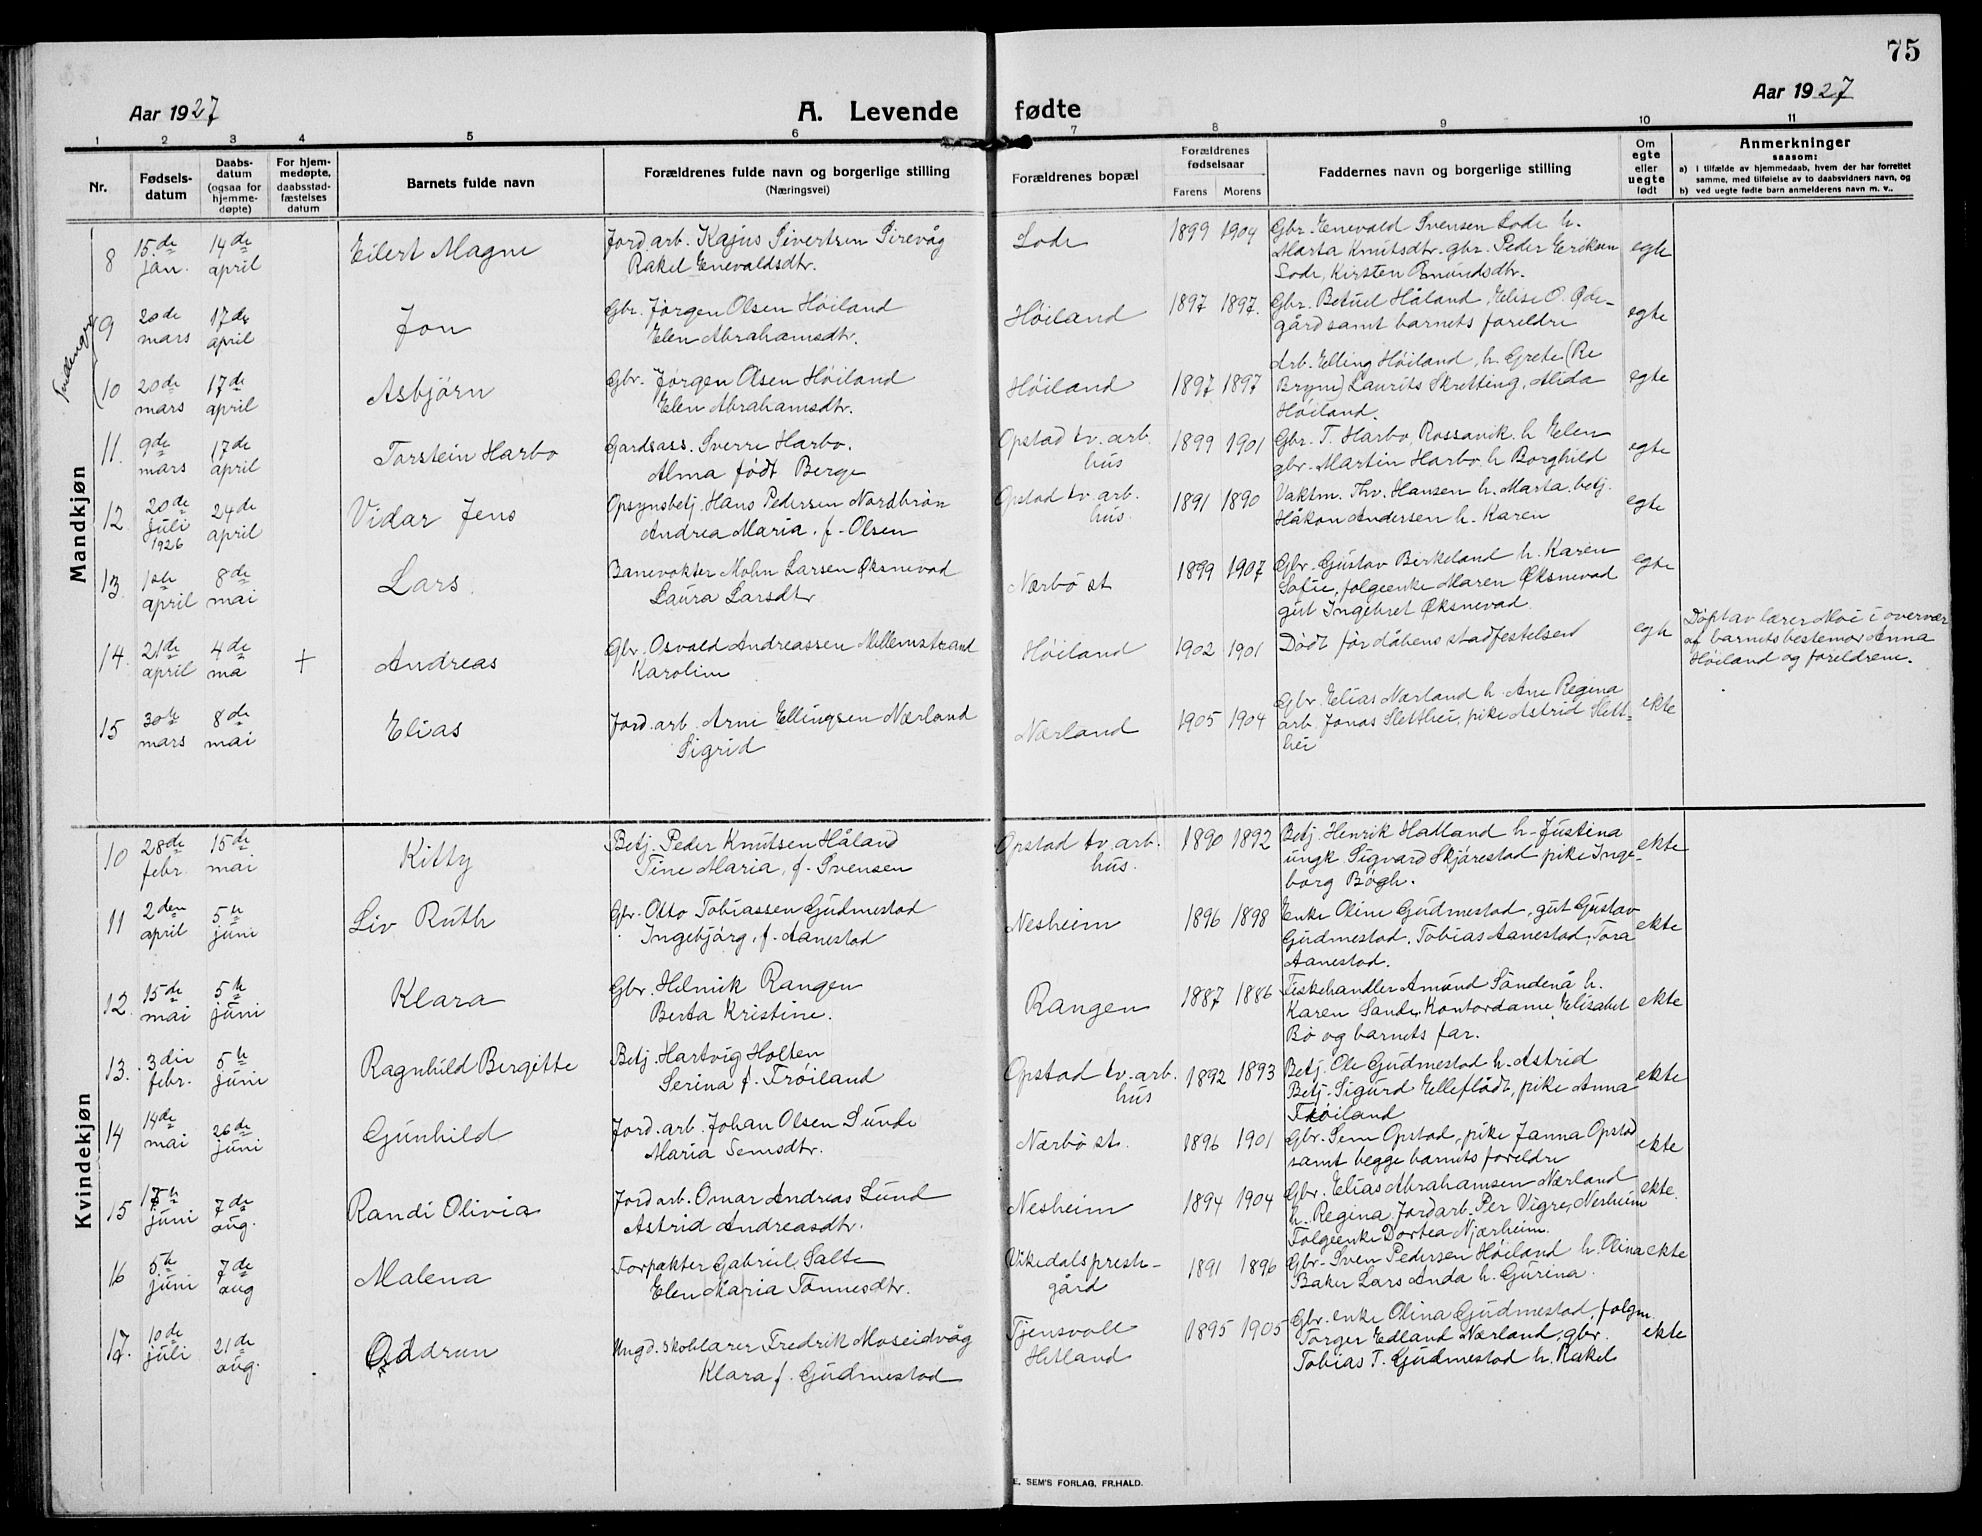 75
Aar 1927
A. Levende fødte
Aar 1927
1 2 3 4 5 6 7 8 9 10 11
Nr.
Fødsels-
datum
Daabs-
datum
(ogsaa for
hjemme-
døpte)
For hjem-
medøpte,
daabsstad-
fæstelses
datum
Barnets fulde navn
Forældrenes fulde navn og borgerlige stilling
(Næringsvei)
Forældrenes bopæl
Forældrenes
fødselsaar
Farens Morens
Faddernes navn og borgerlige stilling
Om
egte
eller
uegte
født
Anmerkninger
saasom:
a) i tilfælde av hjemmedaab, hvem der har forrettet
samme, med tilføielse av to daabsvidners navn, og
b) ved uegte fødte barn anmelderens navn m. v..
Mandkjøn
8 15.de jan. 14de april
Eilert Magne
Jord.arb. Kajus Sivertsen Sirevåg
Rakel Enevaldsdtr.
Lode
1899 1904
Gbr. Enevald Svensen Lode h.
Marta Knutsdtr. gbr. Peder Eriksen
Lode, Kirsten Omundsdtr.
egte
9 20de mars 17de april
Jon
Gbr. Jørgen Olsen Høiland
Elen Abrahamsdtr.
Høiland
1897 1897.
Gbr. Betuel Håland, Elise O. Øde-
gård samt barnets foreldre
egte
10 20de mars 17de april
Asbjörn
Gbr. Jørgen Olsen Høiland
Elen Abrahamsdtr.
Høiland
1897 1897
Arb. Elling Høiland, h. Grete (Re
Bryne) Laurits Skretting, Alida
Høiland.
egte
11. 9de mars 17de april
Torstein Harbo
Gardsass. Sverre Harbo.
Alma født Berge
Opstad tv. arb.
hus
1899 1901
Gbr. T. Harbo, Rossavik. h Elen
gbr. Martin Harbo h Borghild
egte
12. 20de juli 1926 24de april
Vidar Jens
Opsynsbetj. Hans Pedersen Nordbrøn
Andrea Maria, f. Olsen
Opstad tv. arb.
hus.
1891 1890
Vaktm. Thv. Hansen h. Marta. betj.
Håkon Andersen h. Karen
egte
13. 1ste april 8de mai
Lars.
Banevokter Mohn Larsen Øksnevad
Laura Larsdtr
Nærbö st
1899 1907
Gbr. Gustav Birkeland h. Karen
Sofie, folgeenke Maren Øksnevad
gut Ingebret Øksnevad.
egte
14. 21de april 4de ma +
Andreas
Gbr. Osvald Andreassen Mellemstrand
Karoline
Høiland
1902 1901
Dødt før dåbens stadfestelsen
egte
Døpt av lærer Moi i overvær
af barnets bestemor Anna
Høiland og foreldrene.
15 30te mars 8de mai
Elias
Jord. arb. Arne Ellingsen Nærland
Sigrid
Nærland
1905 1904
Gbr. Elias Nærland h. Ane Regina
arb. Jonas Sletthei, pike Astrid Slett-
hei
ekte
Kvindekjøn
10 28de febr. 15de mai
Kitty
Betj. Peder Knutsen Håland
Tine Maria, f. Svensen
Opstad tv. arb.
hus.
1890 1892
Betj. Henrik Hatland h. Justina
ungk. Sigvard Skjørestad pike Inge-
borg Bøgh.
ekte
11 2den april 5te juni
Liv Ruth
Gbr. Otto Tobiassen Gudmestad
Ingebjørg, f. Aanestad
Nesheim
1896 1898
Enke Oline Gudmestad, gut Gustav
Gudmestad, Tobias Aanestad, Tora
Aanestad.
ekte
12. 15de mai 5te juni
Klara
Gbr. Helmik Rangen
Berta Kristine.
Rangen
1887 1886
Fiskehandler Amund Søndenå h.
Karen Sande, Kontordame Elisabet
Bø og barnets far.
ekte
13. 3die febr. 5te juni
Ragnhild Bergitte
Betj. Hartvig Holten
Serina f. Trøiland
Opstad tv. arb.
hus
1892 1893
Betj. Ole Gudmestad h. Astrid
Betj. Sigurd Elleflødt, pike Anna
Trøiland
ekte
14 14de mai 26de juni
Gunhild
Jord. arb. Johan Olsen Lunde
Maria Semsdtr.
Nærbö st.
1896 1901
Gbr. Sem Opstad, pike Janna Opstad
samt begge barnets foreldre
ekte
15 juni 7de aug.
Randi Olivia
Jordarb. Omar Andreas Lund
Astrid Andreasdtr.
Nesheim
1894 1904
Gbr. Elias Abrahamsen Nærland
h. Regina. Jordarb. Per Vigre, Nesheim
Folgeenke Dortea Njærheim.
ekte.
16 5te juni 7de aug
Malena
Forpakter Gabriel Salte
Elen Maria Tønnesdtr.
Vikedalsprest-
gård
1891 1896
Gbr. Sven Pedersen Høiland h. Olina
Baker Lars Anda h. Gurina.
ekte
17. 10de juli 21de aug.
Oddrun
Ungd.skolelærer Fredrik Moseidvåg
Klara f. Gudmestad
Tjensvoll
Hetland
1895 1905
Gbr. enke Olina Gudmestad, folgm.
Torger Edland Nærland, gbr.
Tobias T. Gudmestad h. Rakel
ekte
E. SEM'S FORLAG, FR.HALD.